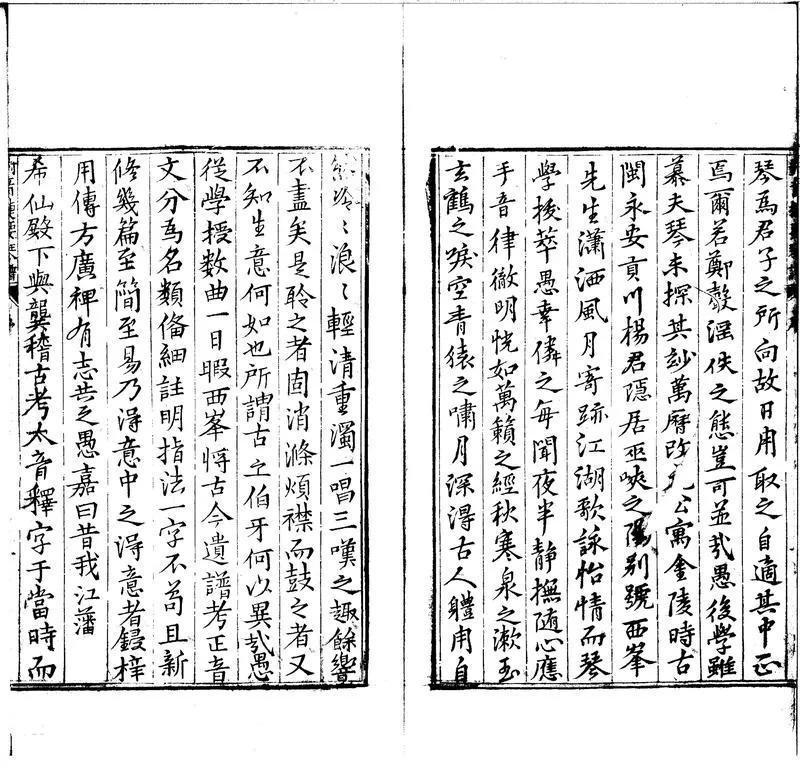 琴爲君子之所向故日用取之自適其中正
焉爾若鄭聲滛佚之態豈可並㢤愚後學雖
慕夫琴未探其玅萬曆改元公寓金陵時古
閩永安貢川楊君隱居巫峽之陽别號西峯
先生瀟洒風月寄跡江湖歌詠怡情而琴
學捘萃愚幸僯之每聞夜半靜撫随心應
手音律徹明恍如萬籟之經秋寒泉之漱玉
玄鶴之唳空青猿之嘯月深淂古人軆用自
冷〻浪〻輕清重濁一唱三嘆之趣餘響
不盡矣是聆之者固消滌煩襟而鼓之者又
不知生意何如也所謂古之伯牙何以異㢤愚
從學授数曲一日暇西峯將古今遺譜考正音
文分爲名類俻細註明指法一字不苟且新
修幾篇至簡至易乃淂意中之淂意者鋟梓
用傳方廣裨有志共之愚嘉曰昔我江藩
希仙殿下與龔稽古考太音釋字于當時而